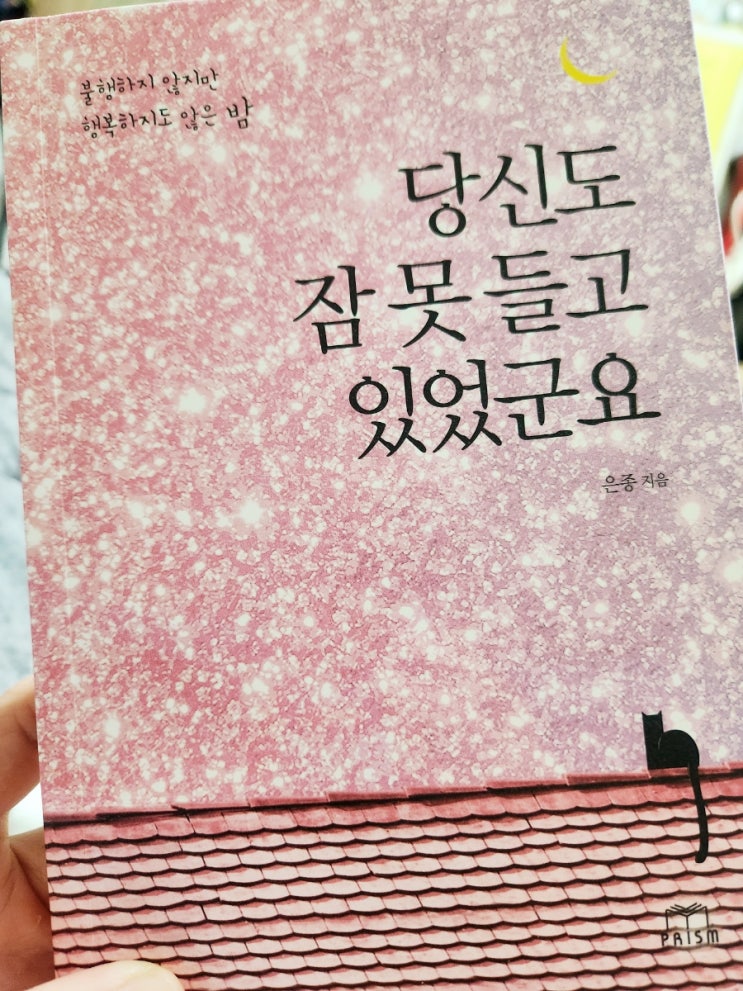 불행하지 않지만
행복하지도 않은 밤
당신도
잠 못 들고
있었군요
은종 지음
PRISM